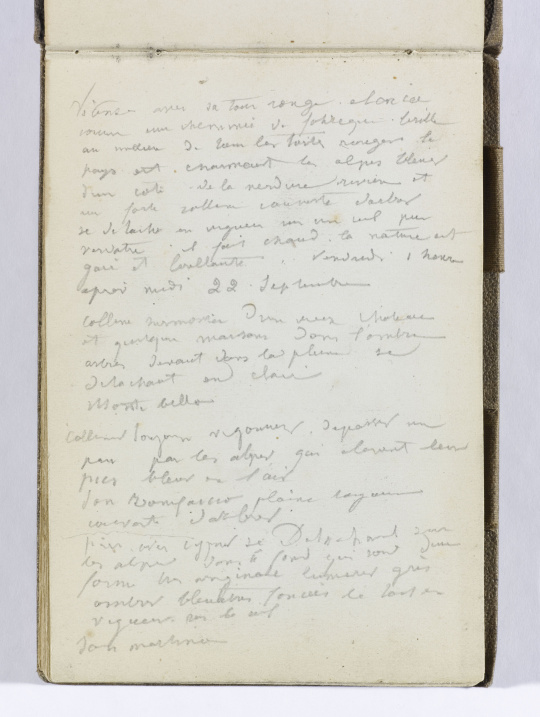 avec sa tour rouge
comme une cheminée de fabrique
au milieu de tous les toits rouges le
pays est charmant les alpes bleues
d'un coté de la verdure et
une forte colline couverte d'arbres
se détache en vigueur sur un ciel peu
verdatre il fait chaud la nature est
gaie et brillante. Vendredi 1 heure
après midi 22 Septembre
Colline surmontée d'un vieux chateau
et quelques maisons dans l'ombre
arbres devant dans la plaine se
détachant en clair
Monte bello
Collines toujours vigoureuses dépassées un
peu par les alpes qui élèvent leurs
pics bleus en l'air
San Bonifaccio plaine
couverte d'arbres
se détachant sur
les alpes dans le fond qui sont d'une
forme lumières gris
ombres bleuatres foncées le tout en
vigueur sur le ciel
San martino